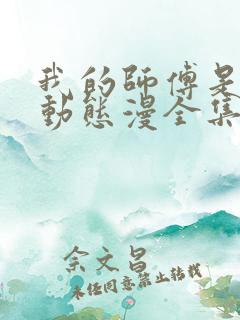 我的師傅是
動態漫全集
余文昌
未经同意禁止转载